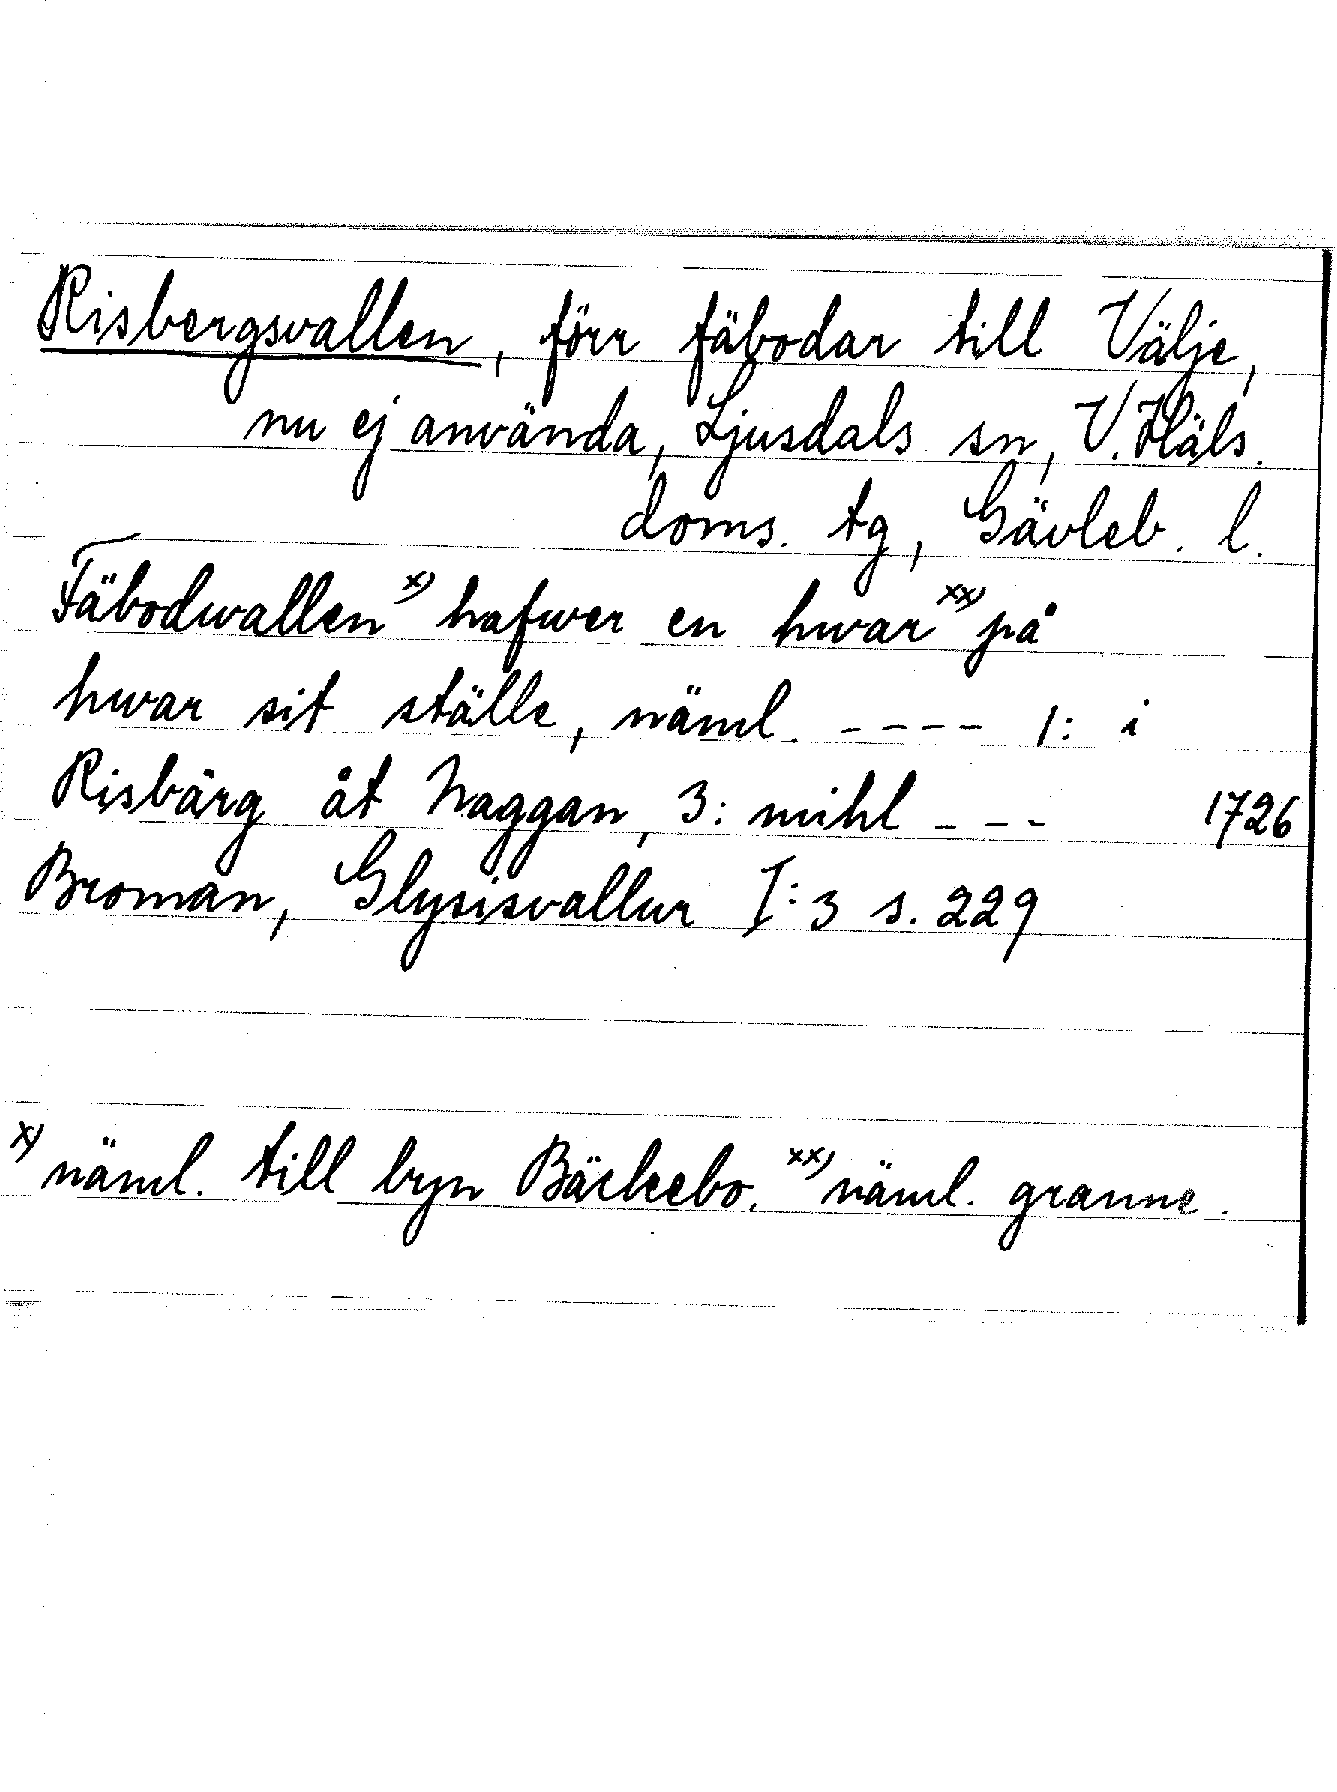 Risbergsvallen, förr fäbodar till Välje,
nu ej använda, Ljusdals sn, V. Häls.
doms. tg, Gävleb. l.
Fäbodwallen x) hafwer en hwar xx) på
hwar sit ställe, näml. ---- 1: i
Risbärg åt Naggan, 3: mihl --- 1726
Broman, Glysisvallur I:3 s. 229
x) näml. till byn Bäckebo. xx) näml. granne.